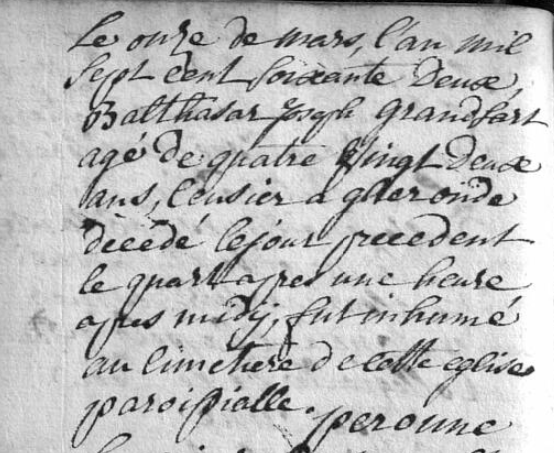 Le onze de mars, l'an mil
sept cent soixante Deux,
Balthasar Joseph grandfart
agé de quatre vingt Deux
ans, Censier a
décédé le jour precedent
le quart apres une heure
apres midy, fut inhumé
au Cimetiere de cette eglise
paroissialle. peronne